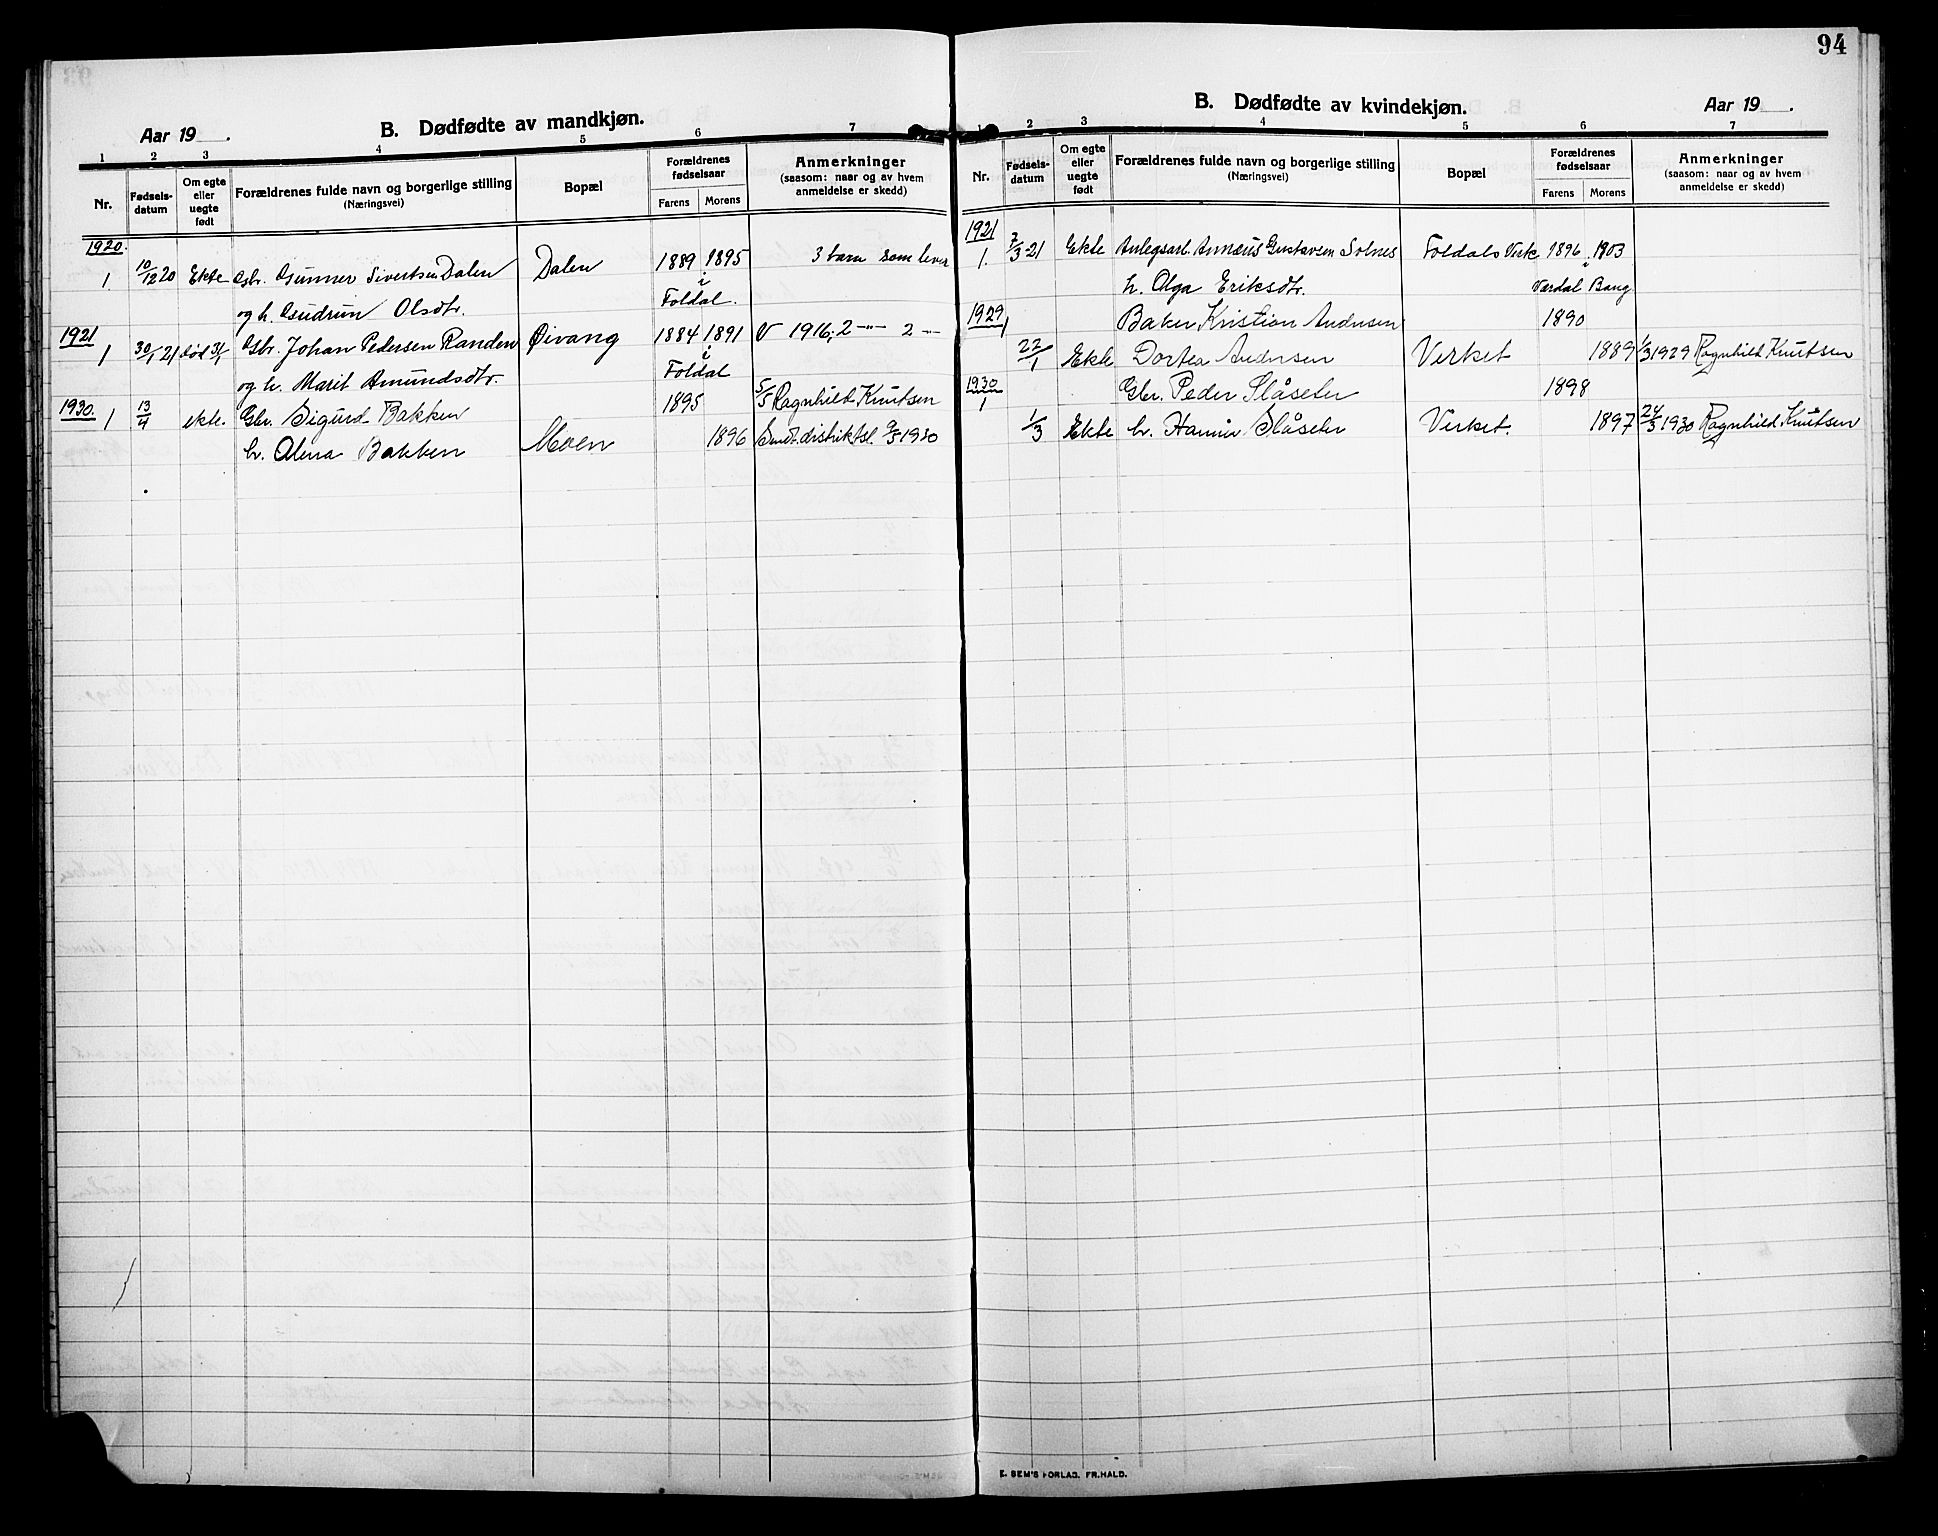 B. Dødfødte av mandkjøn.
Aar 19 .
1 2 3 4 5 6 7
Nr.
Fødsels-
datum
Om egte
eller
uegte
født
Forældrenes fulde navn og borgerlige stilling
(Næringsvei)
Bopæl
Forældrenes
fødselsaar
Farens Morens
Anmerkninger
(saasom: naar og av hvem
anmeldelse er skedd)
1920.
1. 10/12 20 Ekte Gbr. Gunner Sivertsen Dalen Dalen 1889 1895 3 barn som lever
i
og h. Gudrun Olsdtr. Foldal.
1921
1 30/1 21 død 31/1 Gbr. Johan Pedersen Randen Øivang 1884 1891 V 1916; 2 -"- 2 -
i
og h. Marit Amundsdtr. Foldal
1930. 1 13/4 ekte. Gbr. Sigurd Bakken 1895 5/5 Ragnhild Knutsen
h. Alma Bakken Moen 1896 Smt. distriktsl. 9/5 1930
94
B. Dødfødte av kvindekjøn.
Aar 19 .
1 2 3 4 5 6 7
Nr.
Fødsels-
datum
Om egte
eller
uegte
født
Forældrenes fulde navn og borgerlige stilling
(Næringsvei)
Bopæl
Forældrenes
fødselsaar
Farens Morens
Anmerkninger
(saasom: naar og av hvem
anmeldelse er skedd)
1921
1. 7/3 21 Ekte Anlegsarb. Annæus Gustavsen Solnes Foldals Verk 1896 1903
i
h. Olga Eriksdtr. Værdal Baug
1929
1 Baker Kristian Andersen 1890
22/1 Ekte Dortea Andersen Verket 1889 1/3 1929 Ragnhild Knutsen
1930
1 Gbr. Peder Slåseter 1898
1/3 Ekte h. Hanna Slåseter Verket. 1897 24/3 1930 Ragnhild Knutsen
E. SEM'S FORLAG. FR.HALD.